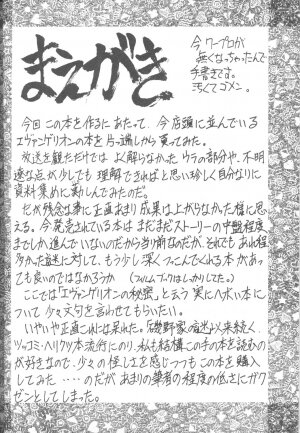 まえがき
今ワープロが
無くなっちゃったんで
手書きです。
汚くてゴメン。
今回この本を作るにあたって、今店頭に並んでいる
エヴァンゲリオンの本を片っ端しから買ってみた。
放送を観ただけでは よく解らなかったウラの部分や、不明
瞭な点が少しでも 理解できればと思い珍しく自分なりに
資料集めに勤しんでみたのだ。
だが残念な事に正直あまり成果は上がらなかった様に思
える。今発売されている本は まだまだストーリーの中盤程度
までしか進んでいないのだから当り前なのだが、それでもあれ程
多かった謎に対して、もう少し 深くつっこんでくれる本があっ
ても良いのではなかろうか (フィルムブックはしっかりしてた。)
ここでは「エヴァンゲリオンの秘密」と云う 実にヘボい本に
ついて 少々文句を言わせてもらいたい。
いやいや正直これには呆れた。「磯野家の謎」以来続く、
ツッコミ・ヘリクツ本流行にのり、私も結構この手の本を読むの
が好きなので、少々の怪しさを感じつつもこの本を購入
してみた・・・・のだが あまりの筆者の程度の低さにガク
ゼンとしてしまった。